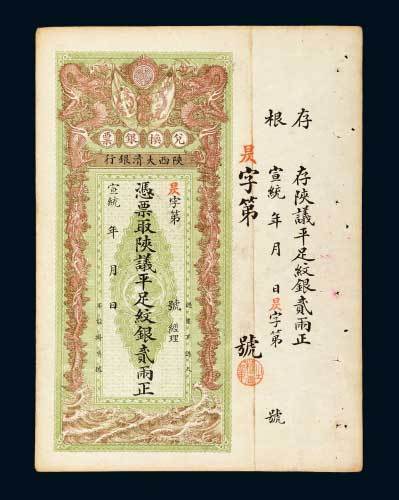 存根
存陝議平足紋銀貳兩正
宣統 年 月 日 昃字第 號
昃字第 號
兌換銀票
陝西大清銀行
昃字第 號 經理
憑票取陝議平足紋銀貳兩正
宣統 年 月 日